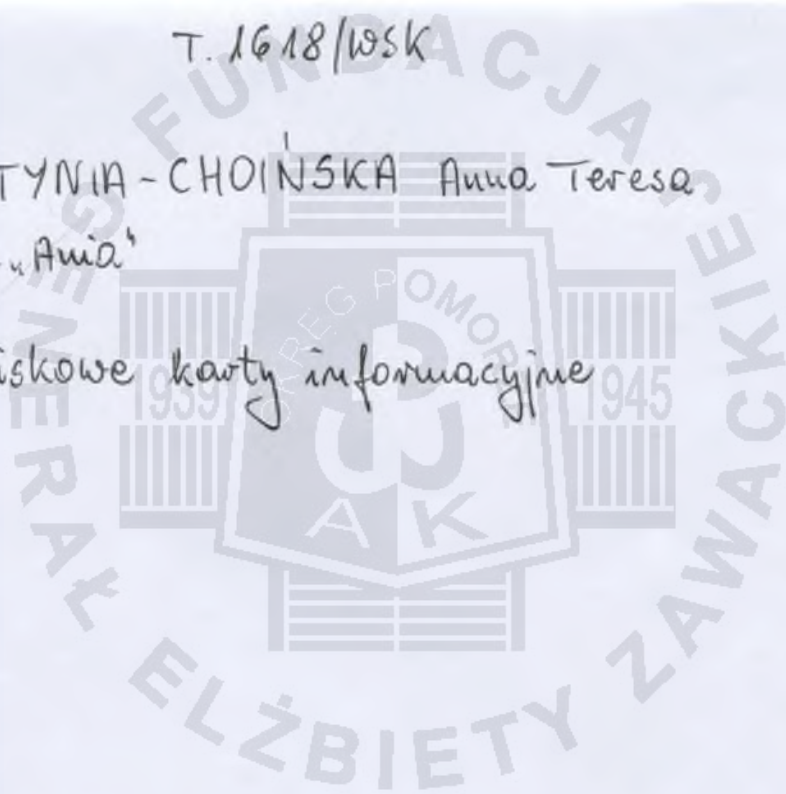 T. 1618/WSK
TYNIA-CHOIŃSKA Anna Teresa
„Ania"
iskowe karty informacyjne
FUNDACJA GENERAŁ ELŻBIETY ZAWACKIEJ
OKRĘG POMORZE
1939 1945
AK